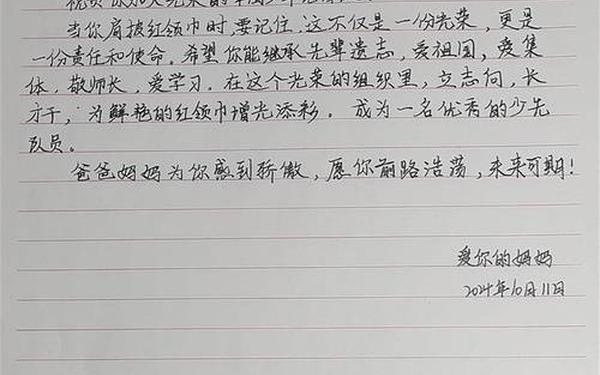 祝贺你加入光荣的中国少年先锋队
当你肩披红领巾时,要记住,这不仅是一份光荣,更是
一份责任和使命。希望你能继承先辈遗志,爱祖国,爱集
体,敬师长,爱学习。在这个光荣的组织里,立志向,长
才干,为鲜艳的红领巾增光添彩。成为一名优秀的少先
队员。
爸爸妈妈为你感到骄傲,愿你前路浩荡,未来可期!
爱你的妈妈
2024年10月11日